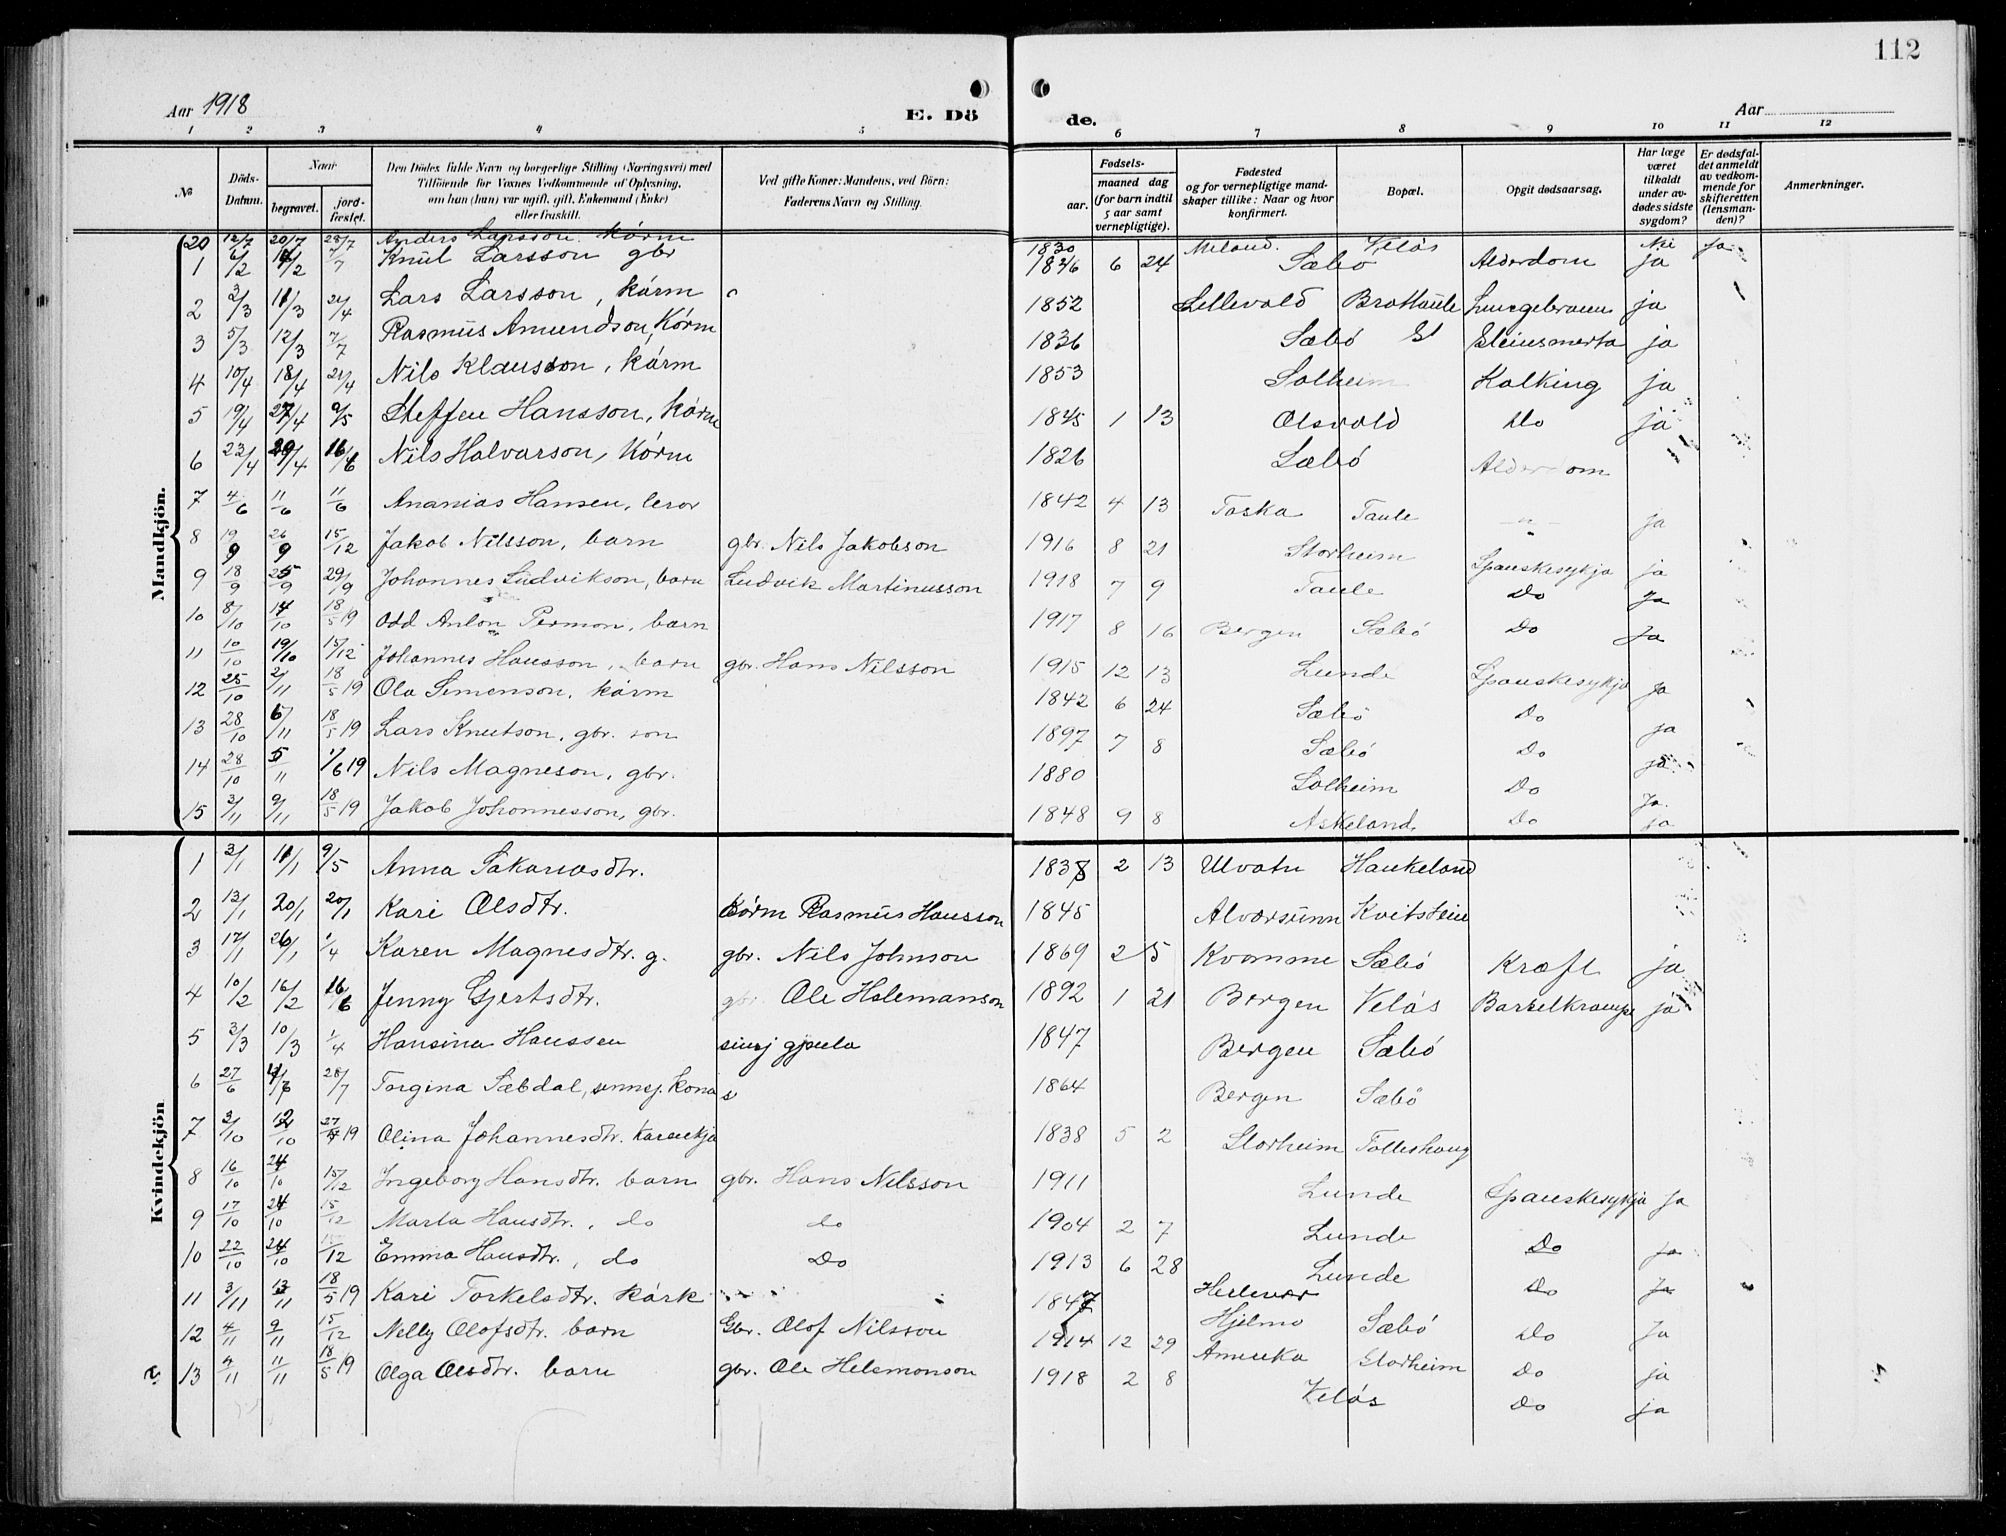 112
Aar 1918
E. Dö
de.
Aar
1 2 3 4 5 6 7 8 9 10 11 12
No
Döds-Datum.
Naar
begravet.
jord-fæstet.
Den Dödes fulde Navn og borgerlige Stilling (Næringsvei) med Tilföiende for Voxnes Vedkommende af Oplysning, om han (hun) var ugift, gift, Enkemand (Enke) eller fraskilt.
Ved gifte Koner: Mandens, ved Börn: Faderens Navn og Stilling.
Fødsels-
aar.
maaned dag
(for barn indtil 5 aar samt vernepligtige).
Fødested og for vernepligtige mandskaper tillike: Naar og hvor konfirmert.
Bopæl.
Opgit dødsaarsag.
Har læge været tilkaldt under avdødes sidste sygdom?
Er dødsfaldet anmeldt av vedkommende for skifteretten (lensmanden)?
Anmerkninger.
Mandkjön.
20 12/7 20/7 28/7 Anders Larsson kórm 1830 Meland. Velás Nei Ja
1 6/2 14/2 7/7 Knut Larsson gbr 1826 6 24 Sæbö Alderdom ja
2 3/3 11/3 21/4 Lars Larsson, kárm 1852 Lillevold Brattaule Lungebraun ja
3 5/3 12/3 7/7 Rasmus Amundson, Kórm 1836 Sæbö Steinsmerta ja
4 10/4 18/4 21/4 Nils Klausson, kárm 1853 Solheim Kolking ja
5 19/4 27/4 9/5 Steffen Hansson, kórm 1845 1 13 Olsvold Do ja
6 23/4 29/4 16/6 Nils Halvarson, Kórm 1826 Sæbó Alderdom
7 4/6 11/6 11/6 Ananias Hansen, leror 1842 4 13 Toska Taule -"- ja
8 19/9 26/9 15/12 Jakob Nilsson, barn gbr. Nils Jakobson 1916 8 21 Storheim Spanskesykja ja
9 18/9 25/9 29/9 Johannes Ludvikson, barn Ludvik Martinusson 1918 7 9 Taule Do Ja
10 8/10 14/10 18/5 19 Odd Anton Permon, barn 1917 8 16 Bergen Sæbó Do Ja
11 10/10 19/10 15/12 Johannes Hansson, barn gbr. Hans Nilsson 1915 12 13 Lunde Spanskesykja ja
12 25/10 2/11 18/5 19 Ola Simenson, kárm 1842 6 24 Sæbó Do ja
13 28/10 6/11 18/5 19 Lars Knutson, gbr. son 1897 7 8 Sæbó Do ja
14 28/10 5/11 1/6 19 Nils Magneson, gbr. 1880 Solheim Do Ja.
15 2/11 9/11 18/5 19 Jakob Johannesson, gbr. 1848 9 8 Askeland Do ja
Kvindekjön
1 3/1 11/1 9/5 Anna Sakariasdtr. 1838 2 13 Ulvatn Haukeland
2 13/1 20/1 20/1 Kari Olsdtr. Kórm Rasmus Hansson 1845 Alversunn Kvitstein
3 17/1 26/1 1/4 Karen Magnesdtr. g. gbr. Nils Johnson 1869 2 5 Kvamme Sæbö Kræft ja
4 10/2 16/2 16/6 Jenny Gjertsdtr. gbr Ole Helemanson 1892 1 21 Bergen Velás Barselkrampe ja
5 3/3 10/3 1/4 Hansina Hanssen sinsj gjenta 1847 Bergen Sæbó
6 27/6 4/7 28/7 Torgina Sæbdal, sinnsj. Kona 1864 Bergen Sæbö
7 3/10 12/10 27/4 19 Olina Johannesdtr. Kárenkja 1838 5 2 Storheim Tolleshaug
8 16/10 24/10 15/12 Ingeborg Hansdtr. barn gbr. Hans Nilsson 1911 Lunde Spanskesykja Ja
9 17/10 24/10 15/12 Marta Hansdtr., do do 1904 2 7 Lunde Do ja
10 22/10 24/10 15/12 Emma Hansdtr., do Do 1913 6 28 Lunde Do Ja
11 3/11 13/11 18/5 19 Kari Torkelsdtr. kárk 1847 Hjelmo Sæbó Do Ja
12 4/11 9/11 15/12 Nelly Olofsdtr. barn Gbr. Olof Nilsson 1914 12 29 Amerika Storheim Do ja
13 4/11 11/11 18/5 19 Olga Olsdtr. barn gbr. Ole Helemonson 1918 2 8 Velás Do ja